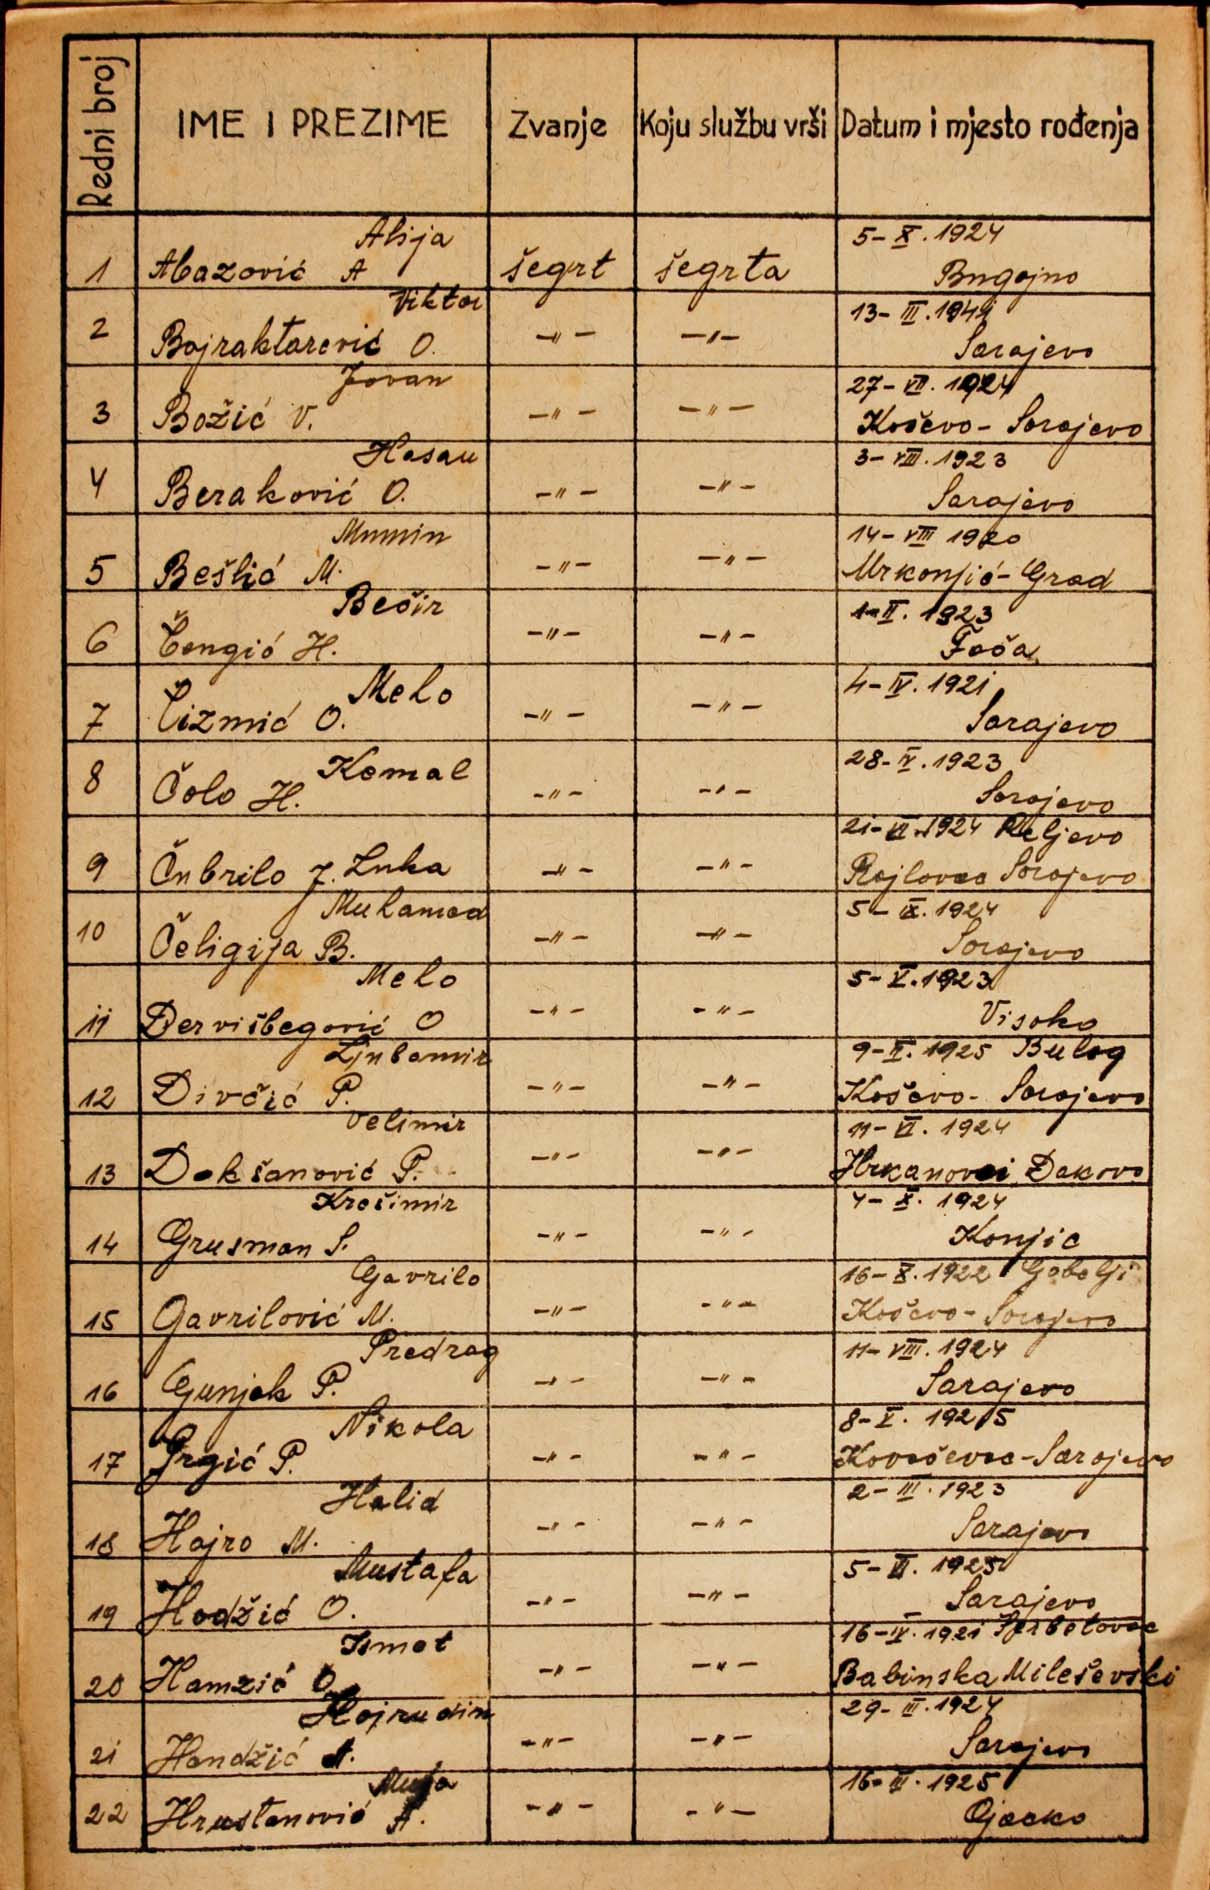 Redni broj
IME I PREZIME
Zvanje
Koju službu vrši
Datum i mjesto rođenja
Alija
5-X.1924
1 Abazović A šegrt šegrta Bugojno
Viktor
13-III.
2 Bajraktarević O. -"- -"- Sarajevo
Jovan
27-VII.1924
3 Božić V. -"- -"- Koševo - Sarajevo
Hasan
3-VIII.1923
4 Beraković O. -"- -"- Sarajevo
Mumin
14-VIII 1920
5 Bešlić M. -"- -"- Mrkonjić-Grad
Bećir
1-II. 1923
6 Čengić H. -"- -"- Foča
Meho
4-IV.1921
7 Čizmić O. -"- -"- Sarajevo
Kemal
28-IV.1923
8 Čolo H. -"- -"- Sarajevo
21-VI.1924 Reljevo
9 Čubrilo J. Luka -"- -"- Rajlovac Sarajevo
Muhamed
5-IX.1924
10 Čeligija B. -"- -"- Sarajevo
Meho
5-V.1923
11 Dervišbegović O -"- -"- Visoko
Ljubomir
9-II.1925 Bulog
12 Divčić P. -"- -"- Koševo - Sarajevo
Velimir
11-VI.1924
13 Dokšanović P. -"- -"- Hrkanovci Đakovo
Krešimir
4-X.1924
14 Grusman S. -"- -"- Konjic
Gavrilo
16-X.1922
15 Gavrilović M. -"- -"- Koševo - Sarajevo
Predrag
11-VIII.1924
16 Gunjak P. -"- -"- Sarajevo
Nikola
8-V. 1925
17 Grgić P. -"- -"- -Sarajevo
Halid
2-III.1923
18 Hajro M. -"- -"- Sarajevo
Mustafa
5-III.1925
19 Hodžić O. -"- -"- Sarajevo
Ismet
16-IV.1921
20 Hamzić O. -"- -"- Babinska Mileševski
Hajrudin
29-III.1924
21 Handžić A. -"- -"- Sarajevo
Mujo
16-III.1925
22 Hrustanović A. -"- -"- Ojacko